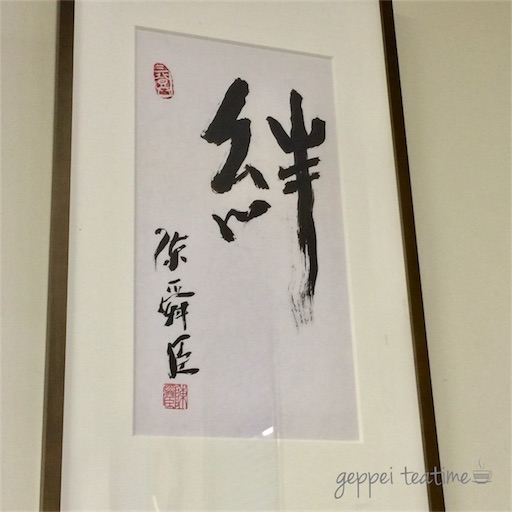 絆
陳舜臣
geppei teatime